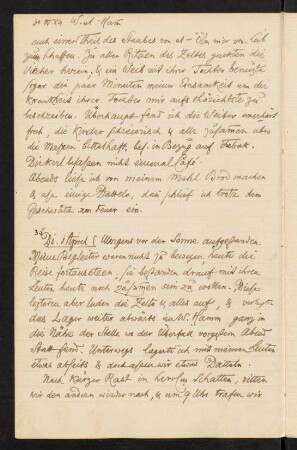 auch einen Theil des Staubes von mir vom Leib
zu schaffen. Zu allen Ritzen des Zeltes guckten die
Weiber herein, & ein Weib mit ihrer Tochter benutzte
sogar den paar Minuten meiner Einsamkeit um die
Krankheit ihrer Tochter mir auf's
beschreiben. Überhaupt fand ich die Weiber unerhört
frech, die Kinder & alle zusammen über
die Massen bettelhaft, bes. in Bezug auf Tabak.
nicht einmal Cafe.
Abends ließ ich von meinem Mehl Brod machen
& aß einige Datteln, dann schlief ich trotz dem
Geschwätz am Feuer ein.
Di. 1 April Morgens vor der Sonne aufgestanden.
Meine Begleiter waren nicht zu bewegen, heute die
Reise fortzusetzen, sie bestanden drauf mit ihren
Leuten heute noch zusammen sein zu wollen. Diese
letztern aber luden die Zelte & alles auf, & verlegten
das Lager weiter abwärts im W. Hamm, ganz in
die Nähe der Stelle wo der Überfall vorgestern Abend
Statt fand. Unterwegs lagerte ich mit meinen Leuten
etwas abseits & etwas Datteln.
Nach kurzer Rast im Schatten, ritten
wir den andern wieder nach, & um 9 Uhr trafen wir